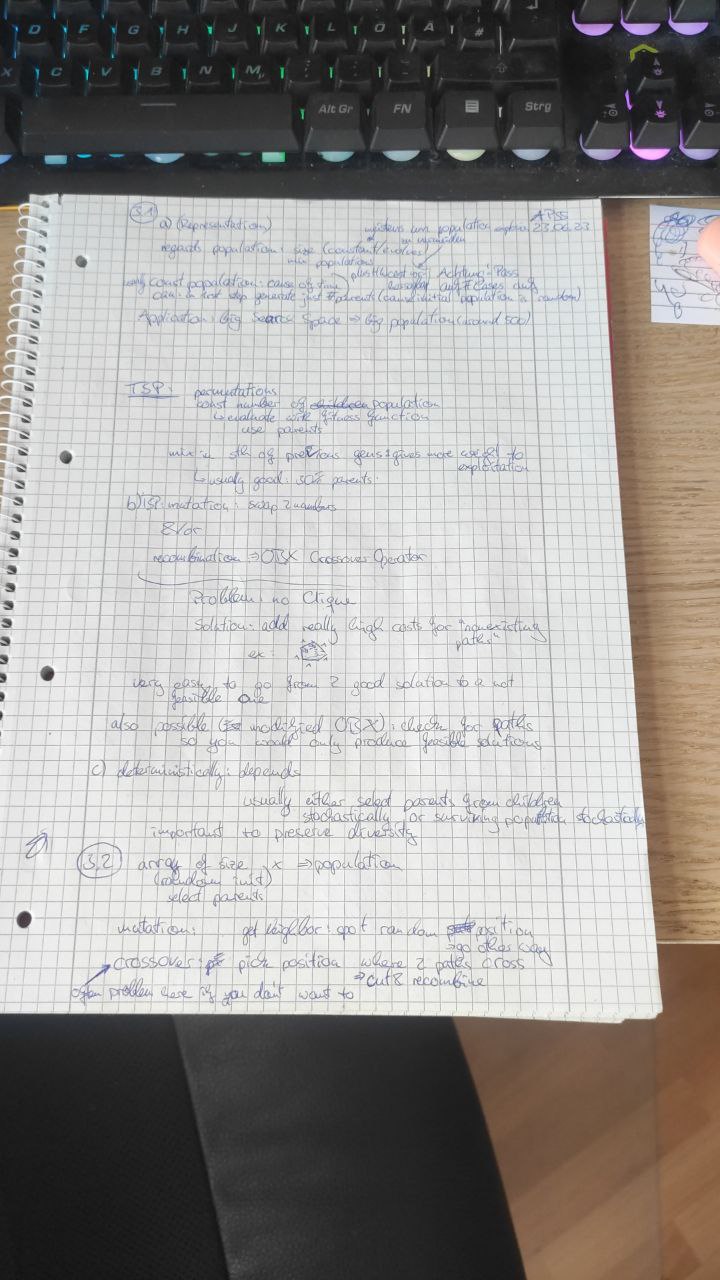 D F G H J K L Ö Ä #
X C V B N M ; : -
Alt Gr FN Strg
APSS
23.06.23
3.1
a) (Representation)
meistens um population explosion
zu vermeiden
regards population: size (constant/evolves)
mix populations
plus # cost or Achtung: Pass
const population: cause of time) auf # Cases auf
can: in first step generate just # parents (cause initial population is random)
Application: Big Search Space ⇒ big population (around 500)
TSP: permutations
const number of population
↳ evaluate with fitness function
use parents
mix in sth of previous gens: gives more weight to
exploitation
↳ usually good: 50% parents
b) TSP: mutation: swap 2 numbers
&/or
recombination ⇒ OBX Crossover Operator
Problem: no Clique
Solution: add really high costs for "nonexisting
paths"
ex:
very easy to go from 2 good solution to a not
feasible one
also possible (modified OBX): check for paths
so you would only produce feasible solutions
c) deterministically: depends
usually either select parents from children
stochastically or surviving population stochastically
important to preserve diversity
3.2
array of size x ⇒ population
(random init)
select parents
mutation: get neighbor: spot random position
⇒ go other way
crossover: pick position where 2 paths cross
⇒ cut & recombine
often problem here if you don't want to